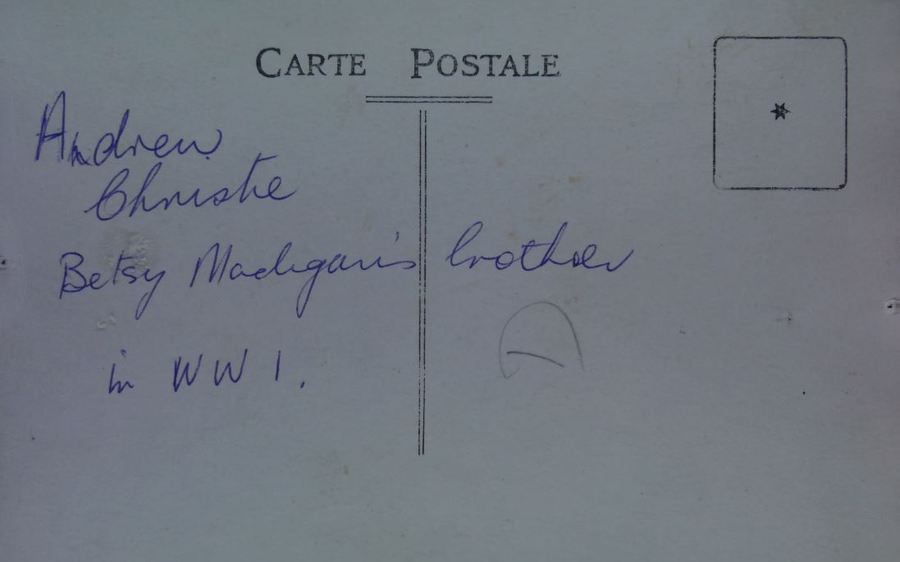 CARTE POSTALE
Andrew
Christie
Betsy Madigan's brother
in WW 1.